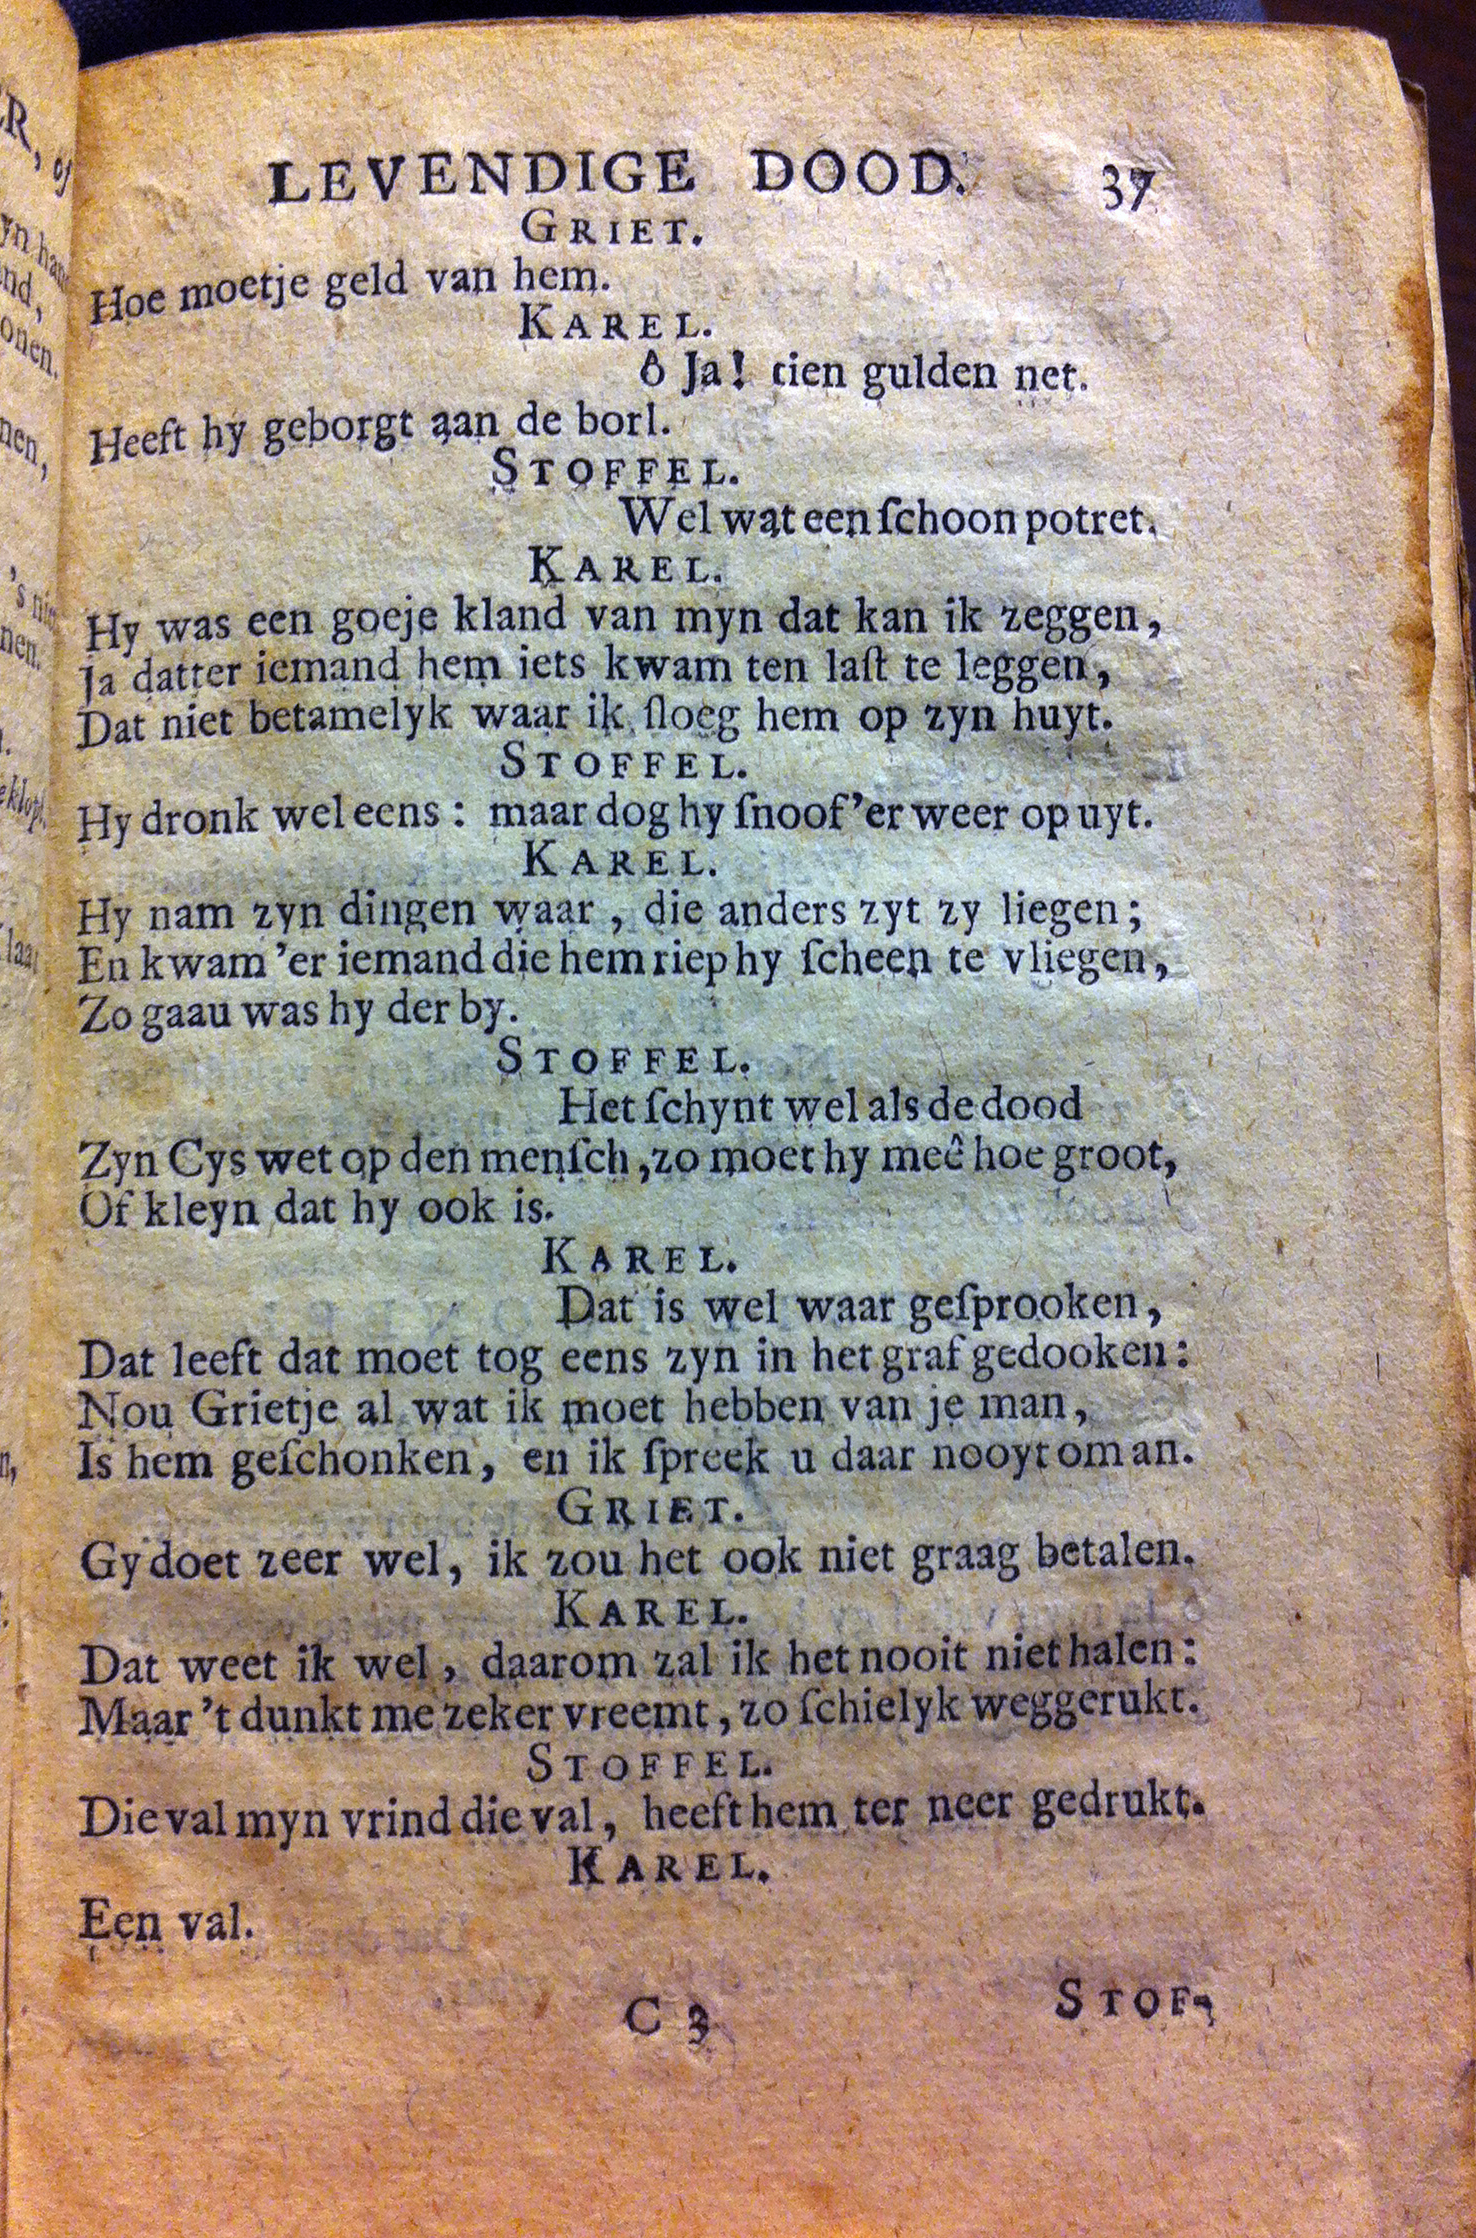 LEVENDIGE DOOD. 37
GRIET.
Hoe moetje geld van hem.
KAREL.
ô Ja! tien gulden net.
Heeft hy geborgt aan de borl.
STOFFEL.
Wel wat een ſchoon potret.
KAREL.
Hy was een goeje kland van myn dat kan ik zeggen,
Ja datter iemand hem iets kwam ten laſt te leggen,
Dat niet betamelyk waar ik ſloeg hem op zyn huyt.
STOFFEL.
Hy dronk wel eens: maar dog hy ſnoof'er weer op uyt.
KAREL.
Hy nam zyn dingen waar, die anders zyt zy liegen;
En kwam 'er iemand die hem riep hy ſcheen te vliegen,
Zo gaau was hy der by.
STOFFEL.
Het ſchynt wel als de dood
Zyn Cys wet op den menſch, zo moet hy meê hoe groot,
Of kleyn dat hy ook is.
KAREL.
Dat is wel waar geſprooken,
Dat leeft dat moet tog eens zyn in het graf gedooken:
Nou Grietje al wat ik moet hebben van je man,
Is hem geſchonken, en ik ſpreek u daar nooyt om an.
GRIET.
Gy doet zeer wel, ik zou het ook niet graag betalen.
KAREL.
Dat weet ik wel, daarom zal ik het nooit niet halen:
Maar 't dunkt me zeker vreemt, zo ſchielyk weggerukt.
STOFFEL.
Die val myn vrind die val, heeft hem ter neer gedrukt.
KAREL.
Een val.
C 3 STOF-